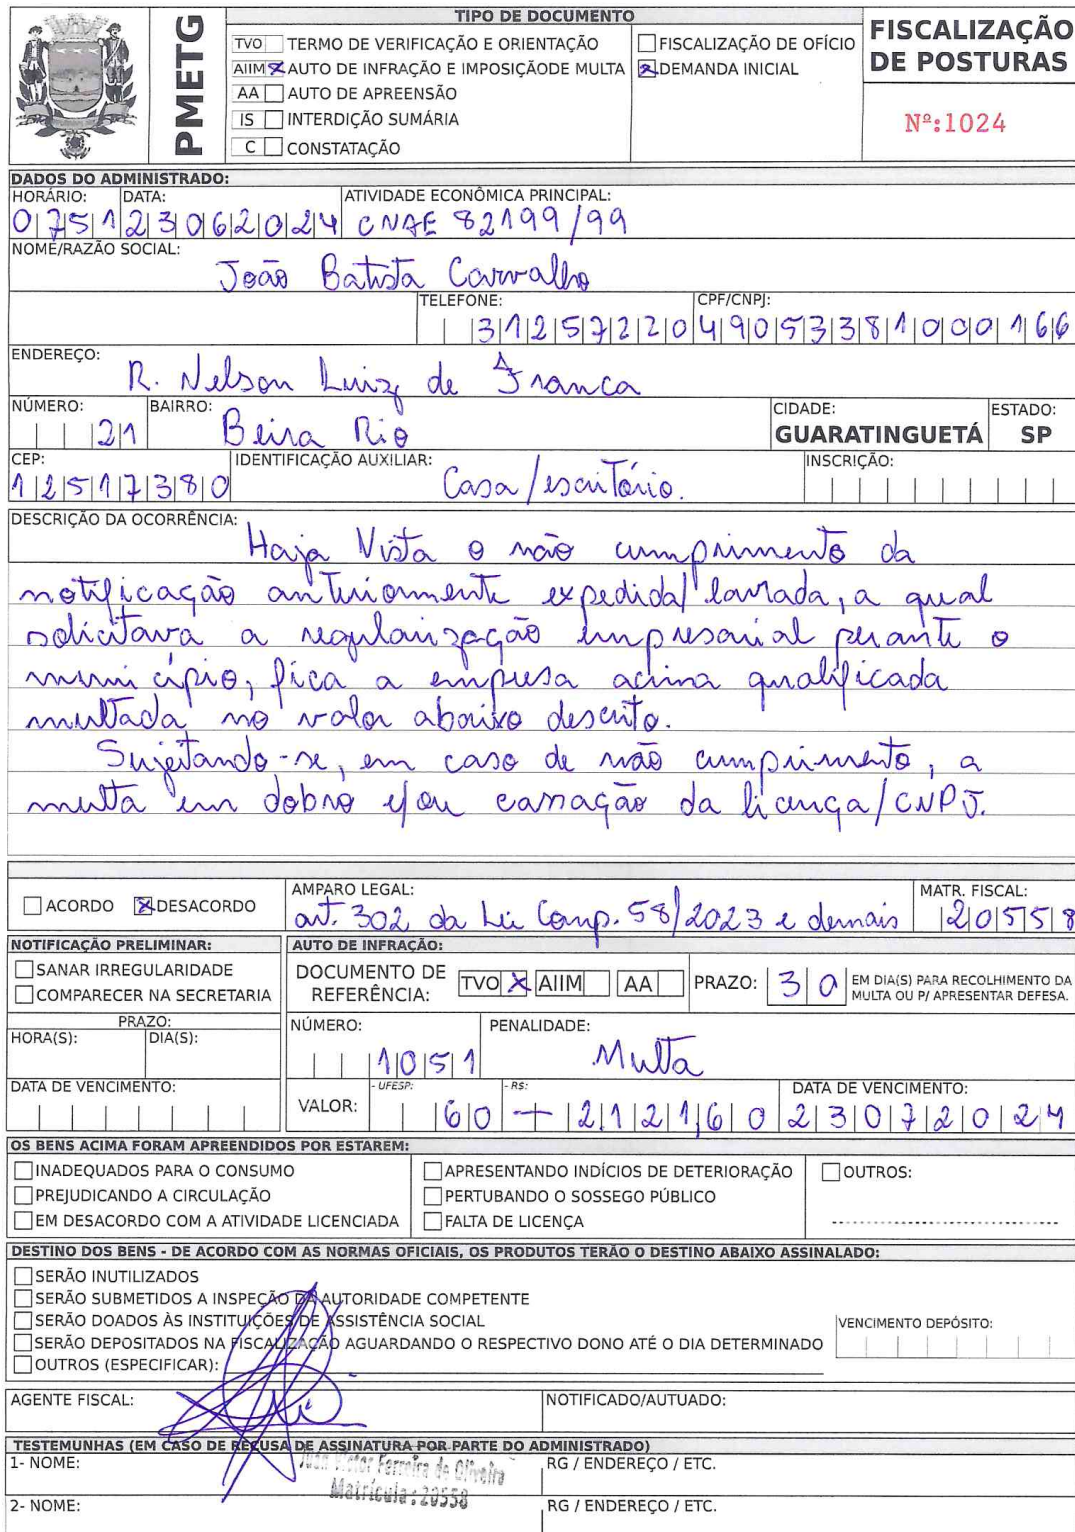 PMETG
TIPO DE DOCUMENTO
TVO TERMO DE VERIFICAÇÃO E ORIENTAÇÃO
AIIM X AUTO DE INFRAÇÃO E IMPOSIÇÃODE MULTA
AA AUTO DE APREENSÃO
IS INTERDIÇÃO SUMÁRIA
C CONSTATAÇÃO
FISCALIZAÇÃO DE OFÍCIO
X DEMANDA INICIAL
FISCALIZAÇÃO
DE POSTURAS
Nº:1024
DADOS DO ADMINISTRADO:
HORÁRIO: DATA: ATIVIDADE ECONÔMICA PRINCIPAL:
0751 23062024 CNAE 82199/99
NOME/RAZÃO SOCIAL:
João Batista Carvalho
TELEFONE: CPF/CNPJ:
31257220 49053381000166
ENDEREÇO:
R. Nelson Luiz de Franca
NÚMERO: BAIRRO: CIDADE: ESTADO:
21 Beira Rio GUARATINGUETÁ SP
CEP: IDENTIFICAÇÃO AUXILIAR: INSCRIÇÃO:
12517380 Casa/escritório.
DESCRIÇÃO DA OCORRÊNCIA:
Haja Vista o não cumprimento da
notificação anteriormente expedida/lavrada, a qual
solicitava a regularização empresarial perante o
município, fica a empresa acima qualificada
multada no valor abaixo descrito.
Sujeitando-se, em caso de não cumprimento, a
multa em dobro e/ou cassação da licença/CNPJ.
ACORDO X DESACORDO
AMPARO LEGAL:
art. 302 da Lei Comp. 58/2023 e demais
MATR. FISCAL:
20558
NOTIFICAÇÃO PRELIMINAR:
SANAR IRREGULARIDADE
COMPARECER NA SECRETARIA
PRAZO:
HORA(S): DIA(S):
DATA DE VENCIMENTO:
AUTO DE INFRAÇÃO:
DOCUMENTO DE
REFERÊNCIA:
TVO X AIIM AA
PRAZO: 30 EM DIA(S) PARA RECOLHIMENTO DA
MULTA OU P/ APRESENTAR DEFESA.
NÚMERO: PENALIDADE:
1051 Multa
VALOR: - UFESP: - R$: DATA DE VENCIMENTO:
60 — 2121,60 23072024
OS BENS ACIMA FORAM APREENDIDOS POR ESTAREM:
INADEQUADOS PARA O CONSUMO
PREJUDICANDO A CIRCULAÇÃO
EM DESACORDO COM A ATIVIDADE LICENCIADA
APRESENTANDO INDÍCIOS DE DETERIORAÇÃO
PERTUBANDO O SOSSEGO PÚBLICO
FALTA DE LICENÇA
OUTROS:
DESTINO DOS BENS - DE ACORDO COM AS NORMAS OFICIAIS, OS PRODUTOS TERÃO O DESTINO ABAIXO ASSINALADO:
SERÃO INUTILIZADOS
SERÃO SUBMETIDOS A INSPEÇÃO DA AUTORIDADE COMPETENTE
SERÃO DOADOS ÀS INSTITUIÇÕES DE ASSISTÊNCIA SOCIAL
SERÃO DEPOSITADOS NA FISCALIZAÇÃO AGUARDANDO O RESPECTIVO DONO ATÉ O DIA DETERMINADO
OUTROS (ESPECIFICAR):
VENCIMENTO DEPÓSITO:
AGENTE FISCAL: NOTIFICADO/AUTUADO:
TESTEMUNHAS (EM CASO DE RECUSA DE ASSINATURA POR PARTE DO ADMINISTRADO)
1- NOME: RG / ENDEREÇO / ETC.
Juan Victor Ferreira de Oliveira
Matrícula:20558
2- NOME: RG / ENDEREÇO / ETC.